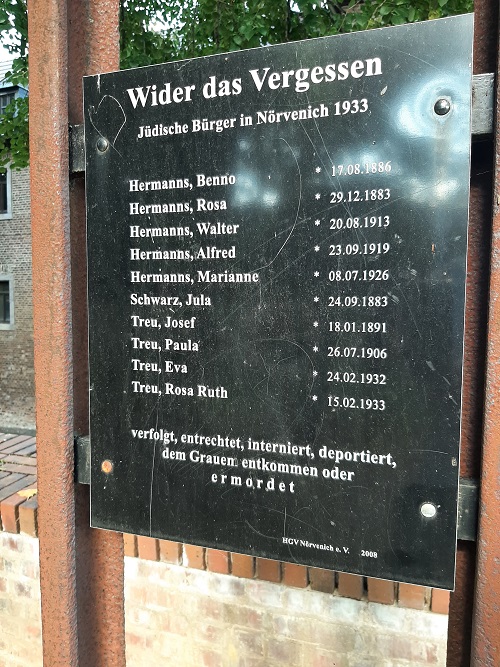 Wider das Vergessen
Jüdische Bürger in Nörvenich 1933
Hermanns, Benno * 17.08.1886
Hermanns, Rosa * 29.12.1883
Hermanns, Walter * 20.08.1913
Hermanns, Alfred * 23.09.1919
Hermanns, Marianne * 08.07.1926
Schwarz, Jula * 24.09.1883
Treu, Josef * 18.01.1891
Treu, Paula * 26.07.1906
Treu, Eva * 24.02.1932
Treu, Rosa Ruth * 15.02.1933
verfolgt, entrechtet, interniert, deportiert,
dem Grauen entkommen oder
e r m o r d e t
HGV Nörvenich e. V. 2008